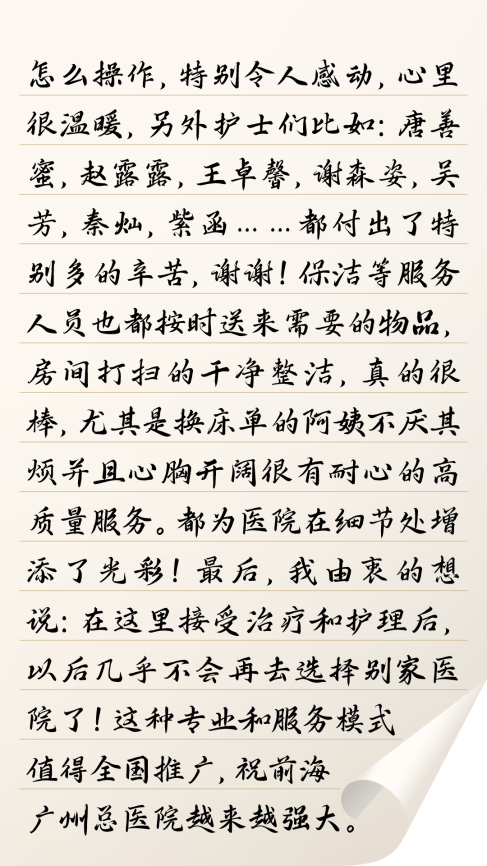 怎么操作，特别令人感动，心里
很温暖，另外护士们比如：唐善
蜜，赵露露，王卓馨，谢森姿，吴
芳，秦灿，紫函……都付出了特
别多的辛苦，谢谢！保洁等服务
人员也都按时送来需要的物品，
房间打扫的干净整洁，真的很
棒，尤其是换床单的阿姨不厌其
烦并且心胸开阔很有耐心的高
质量服务。都为医院在细节处增
添了光彩！最后，我由衷的想
说：在这里接受治疗和护理后，
以后几乎不会再去选择别家医
院了！这种专业和服务模式
值得全国推广，祝前海
广州总医院越来越强大。